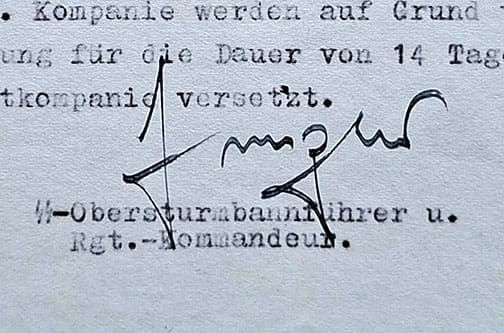 . Kompanie werden auf Grund
ung für die Dauer von 14 Tag
tkompanie versetzt.
SS-Obersturmbannführer u.
Rgt.-Kommandeur.